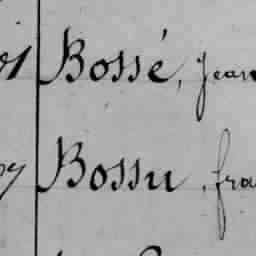 Bossé, Jean
Bossu, fra